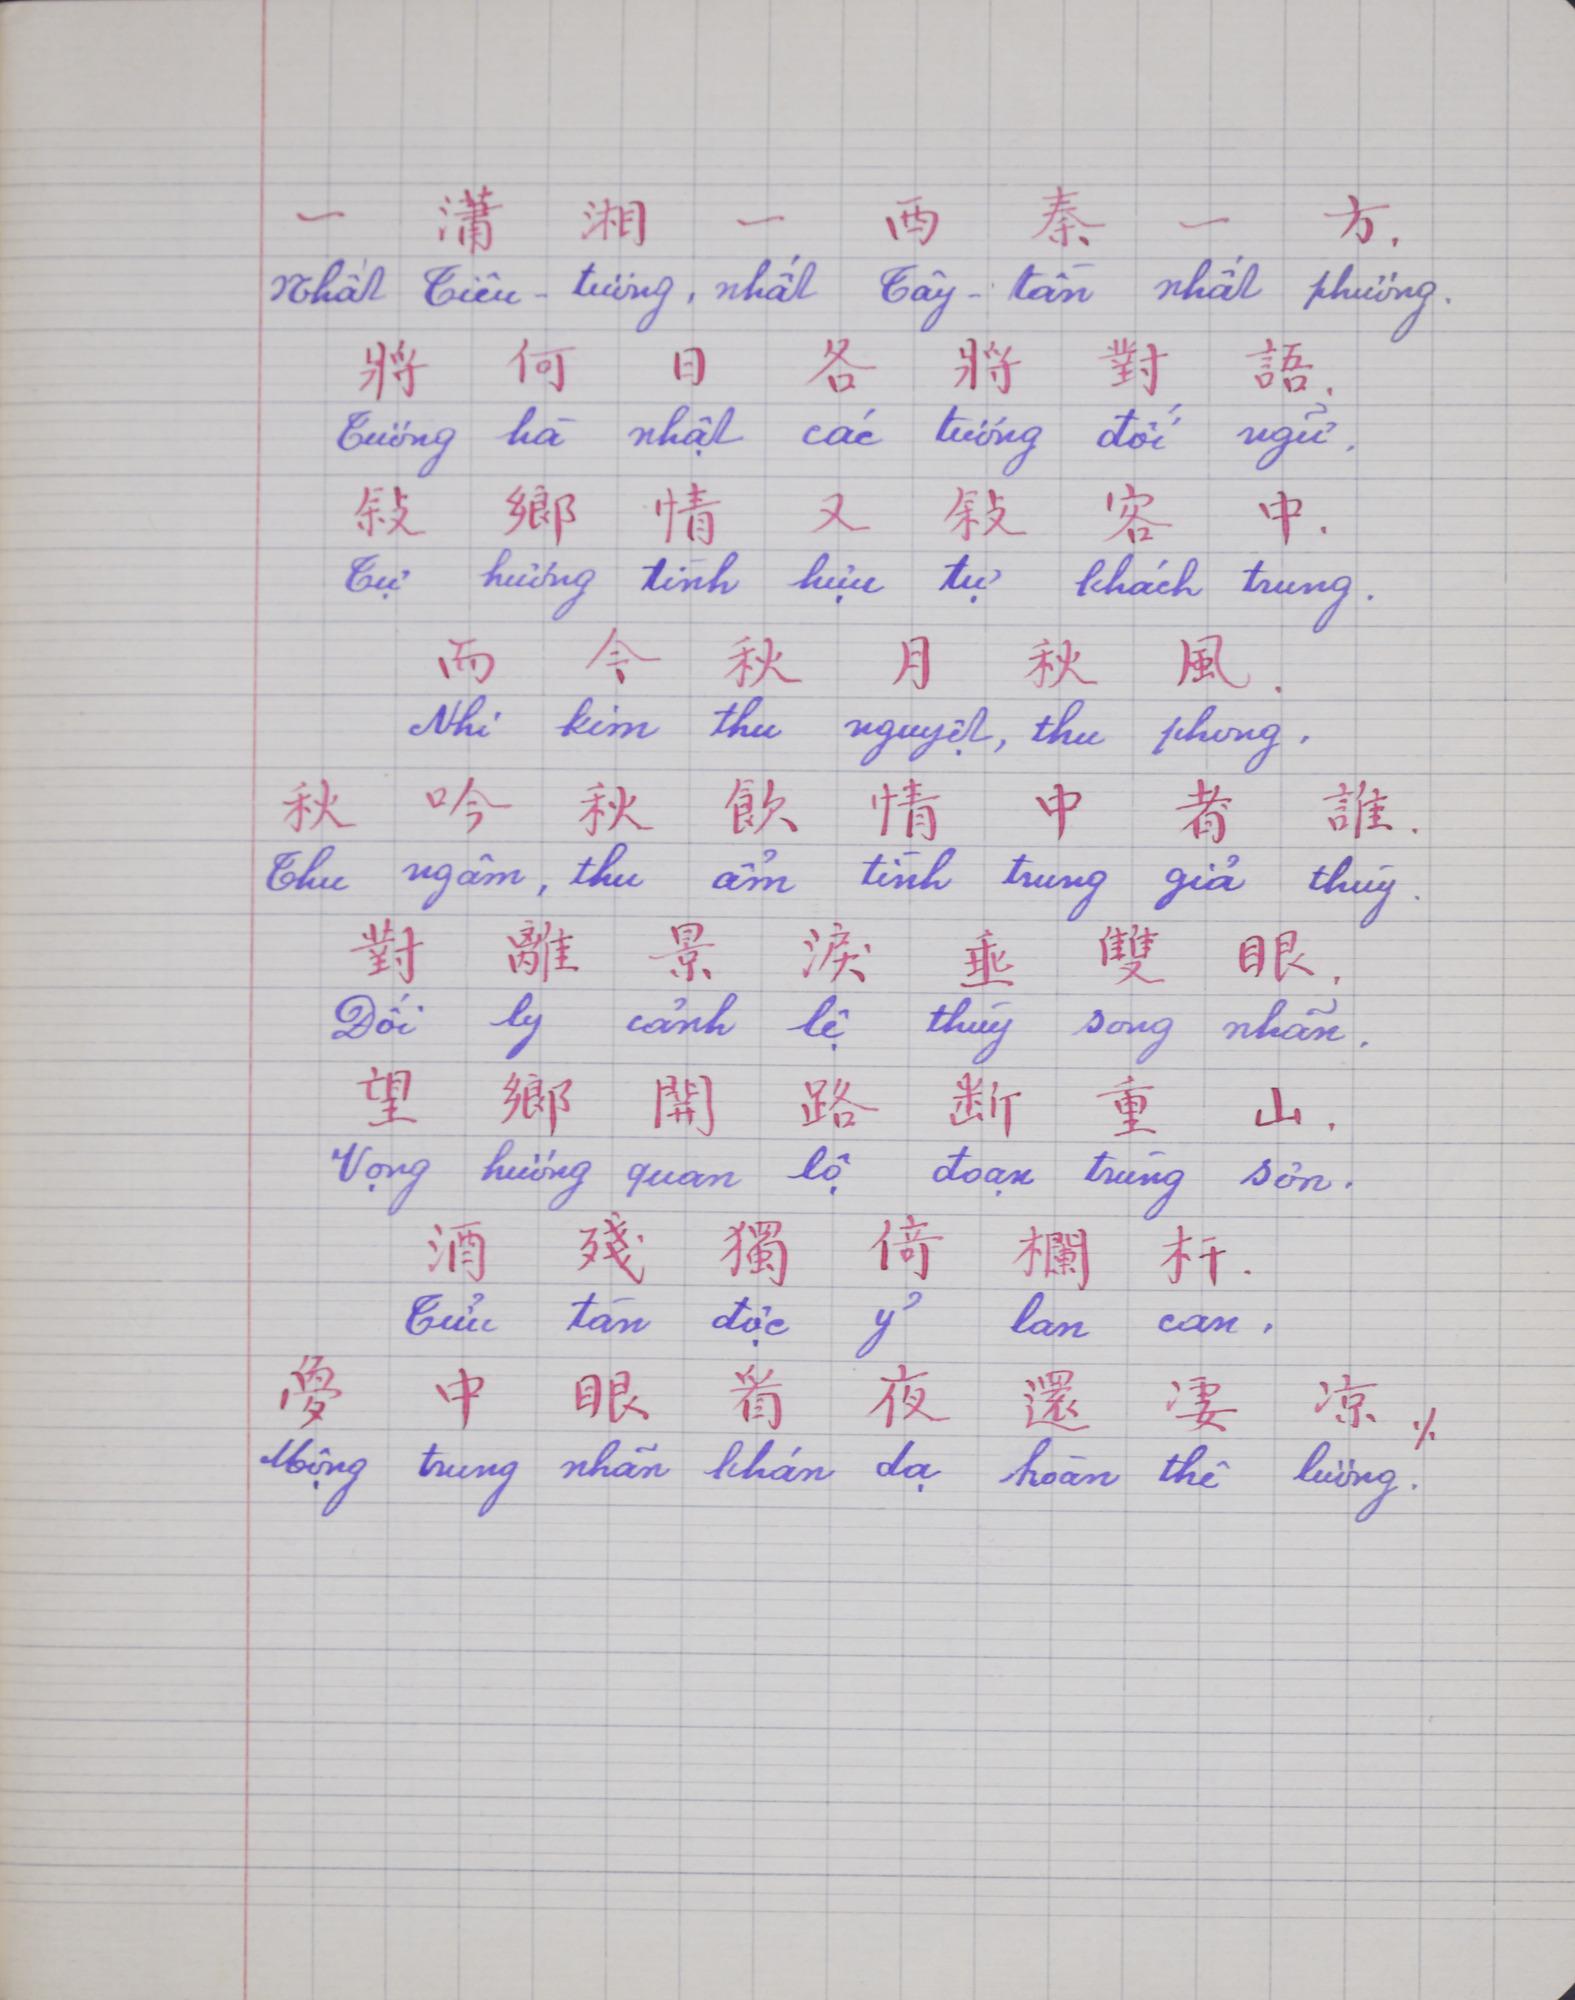 一 瀟 湘 一 西 秦 一 方.
Nhất Tiêu - tương, nhất Tây - tần nhất phương.
將 何 日 各 將 對 語.
Tương hà nhật các tương đối ngữ.
敍 鄉 情 又 敍 客 中.
Tự hương tình hựu tự khách trung.
而 今 秋 月 秋 風.
Nhi kim thu nguyệt, thu phong.
秋 吟 秋 飲 情 中 者 誰.
Thu ngâm, thu ẩm tình trung giả thùy.
對 離 景 淚 垂 雙 眼.
Đối ly cảnh lệ thùy song nhãn.
望 鄉 開 路 断 重 山.
Vọng hương quan lộ đoạn trùng sơn.
酒 殘 獨 倚 欄 杆.
Tửu tàn độc ỷ lan can.
夢 中 眼 看 夜 還 凄 凉 ./.
Mộng trung nhãn khán dạ hoàn thê lương.